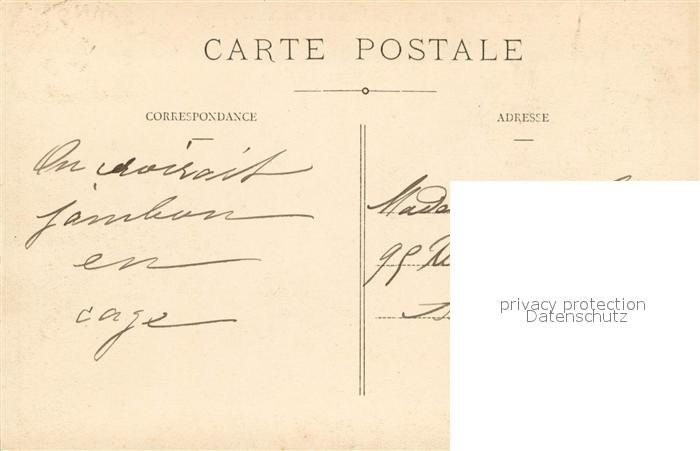 CARTE POSTALE
CORRESPONDANCE
On croirait
jambon
en
cage
ADRESSE
Mada
95
privacy protection
Datenschutz